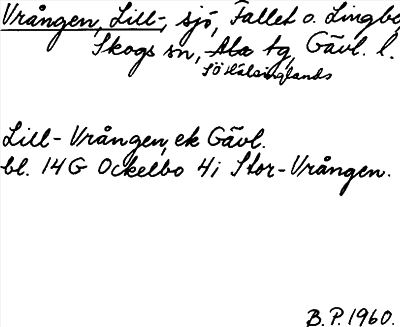 Vrången, Lill-, sjö, Fallet o. Lingbo,
Skogs sn, Ala tg, Gävl. l.
Sö Hälsinglands
Lill-Vrången, ek Gävl.
bl. 14G Ockelbo 4i Stor-Vrången.
B.P. 1960.